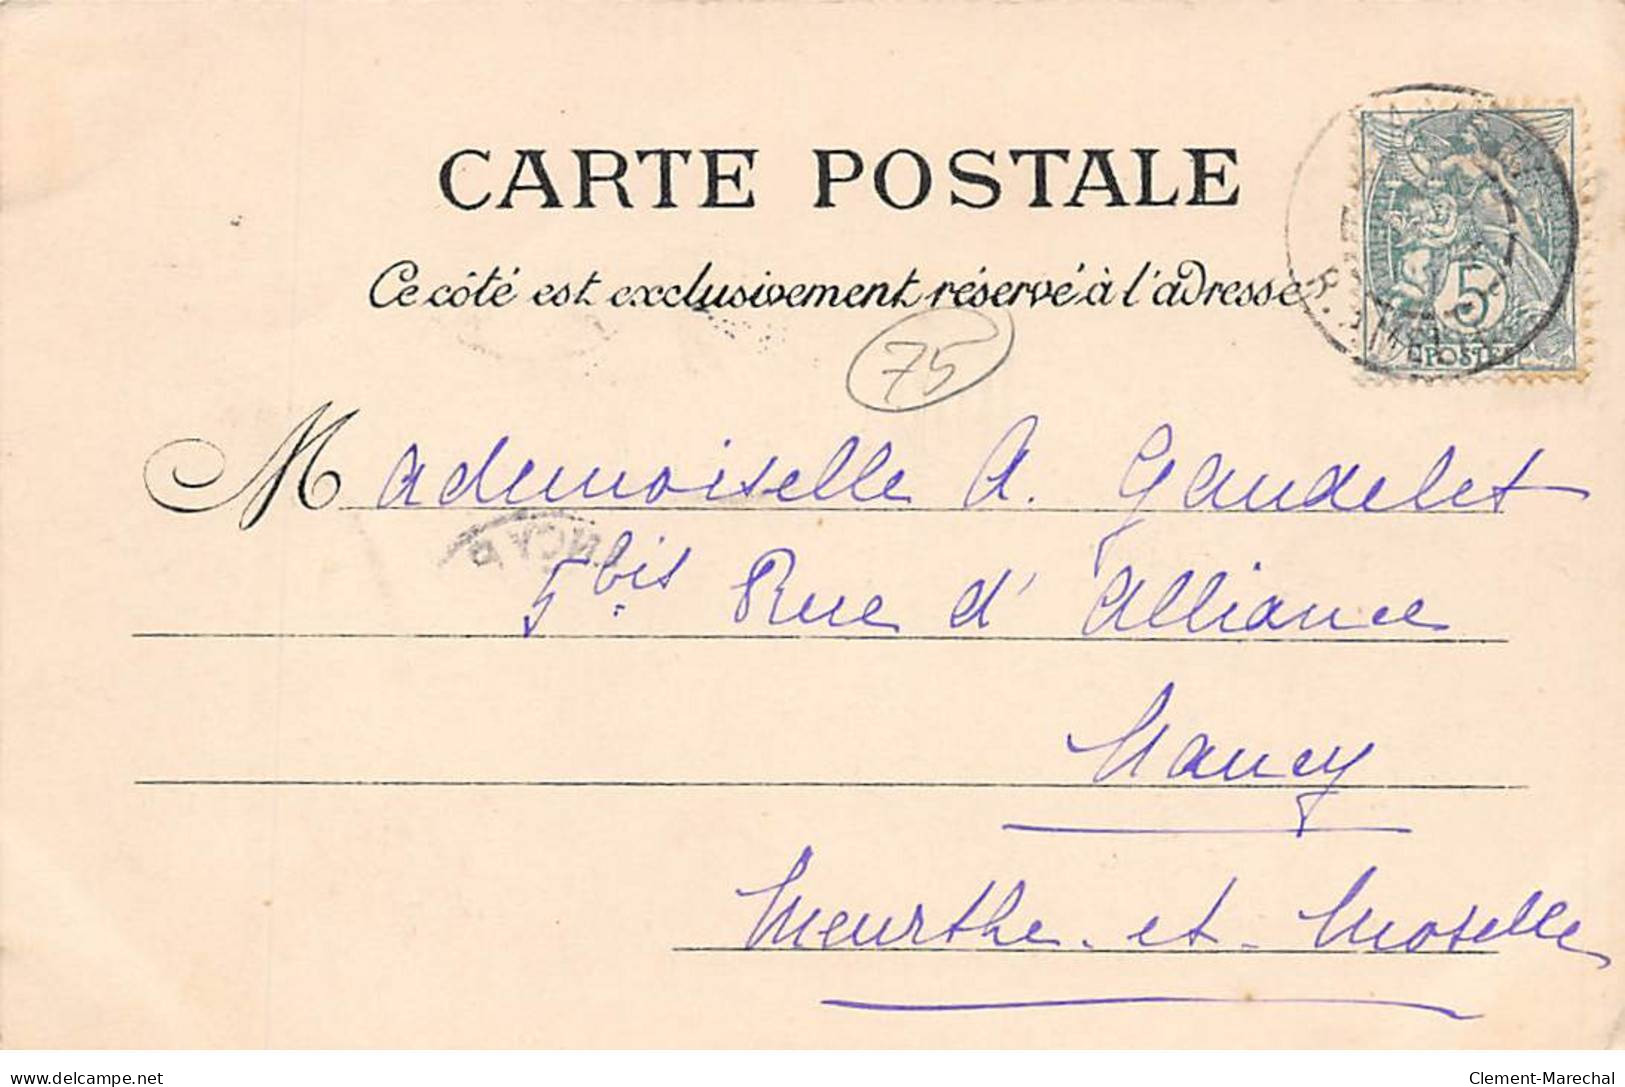 CARTE POSTALE
Ce côté est exclusivement réservé à l'adresse
75
Mademoiselle A. Gaudelet
5bis Rue d'Alliance
Nancy
Meurthe-et-Moselle
5
POSTES
delcampe.net
Clement-Marechal